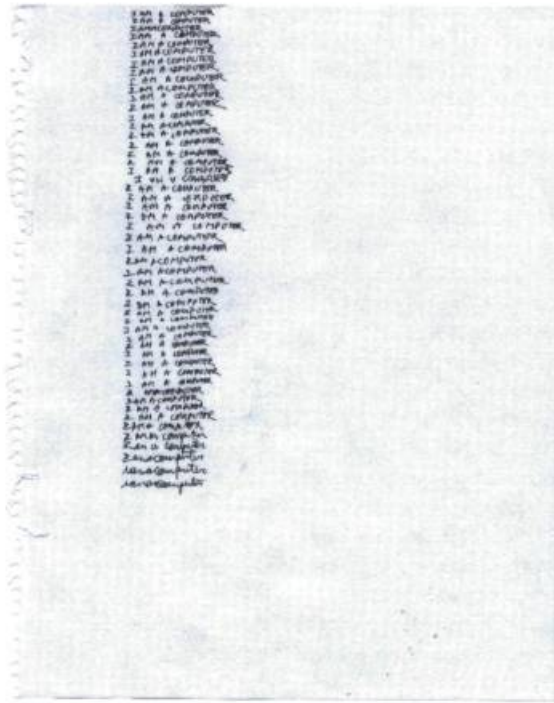 I AM A COMPUTER
I AM A COMPUTER
I AM A COMPUTER
I AM A COMPUTER
I AM A COMPUTER
I AM A COMPUTER
I AM A COMPUTER
I AM A COMPUTER
I AM A COMPUTER
I AM A COMPUTER
I AM A COMPUTER
I AM A COMPUTER
I AM A COMPUTER
I AM A COMPUTER
I AM A COMPUTER
I AM A COMPUTER
I AM A COMPUTER
I AM A COMPUTER
I AM A COMPUTER
I AM A COMPUTER
I AM A COMPUTER
I AM A COMPUTER
I AM A COMPUTER
I AM A COMPUTER
I AM A COMPUTER
I AM A COMPUTER
I AM A COMPUTER
I AM A COMPUTER
I AM A COMPUTER
I AM A COMPUTER
I AM A COMPUTER
I AM A COMPUTER
I AM A COMPUTER
I AM A COMPUTER
I AM A COMPUTER
I AM A COMPUTER
I AM A COMPUTER
I AM A COMPUTER
I AM A COMPUTER
I AM A COMPUTER
I AM A COMPUTER
I AM A COMPUTER
I AM A COMPUTER
I AM A COMPUTER
I AM A COMPUTER
I AM A Computer
I am a computer
I am a computer
iamacomputer
iamacomputer